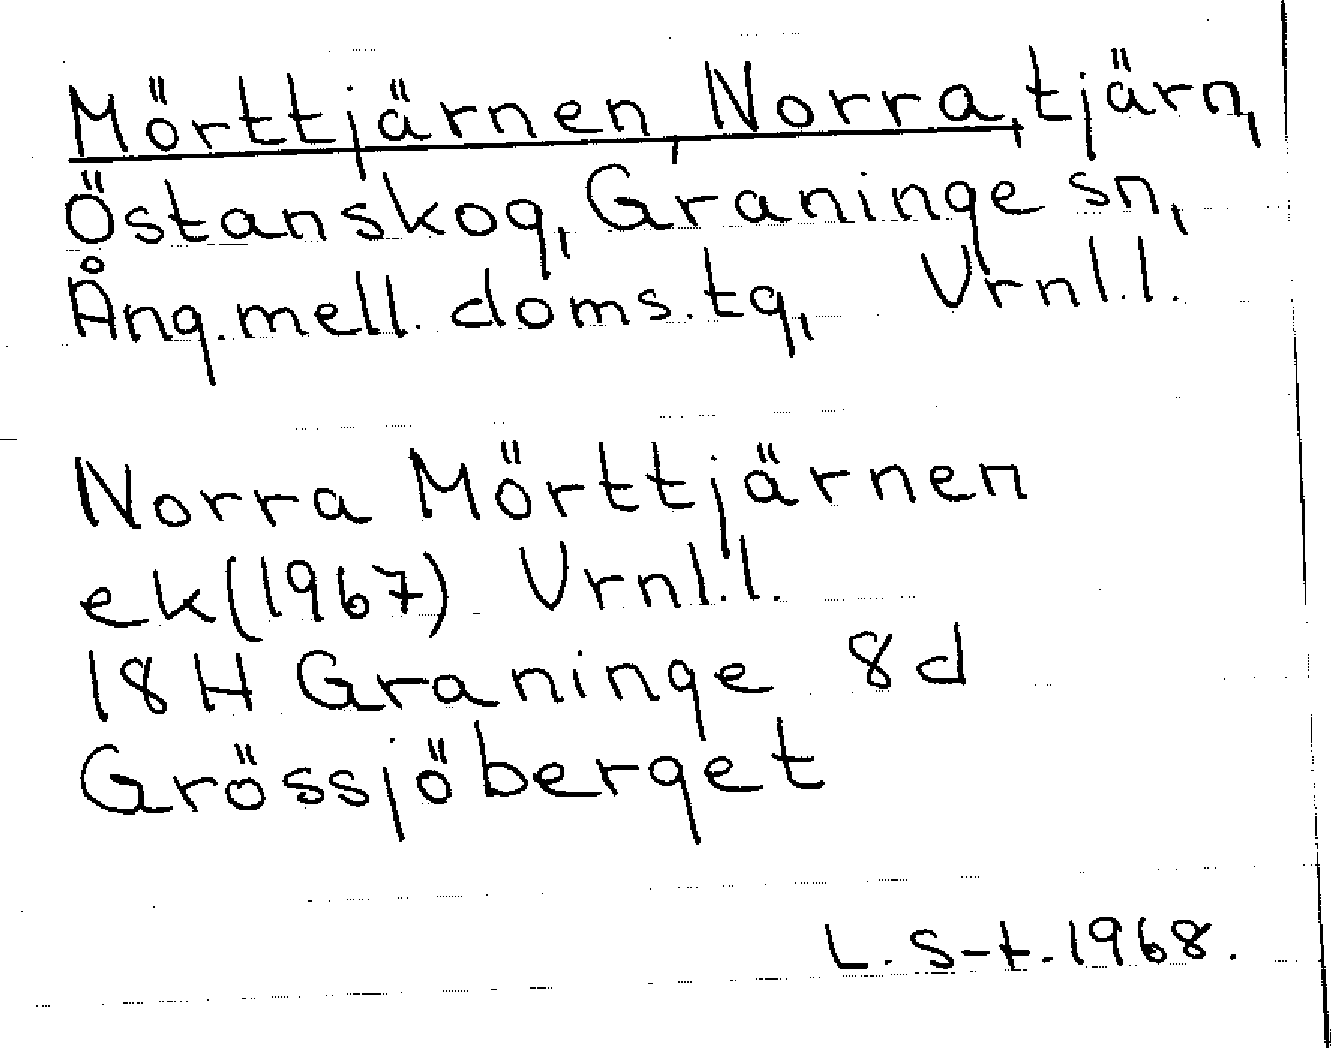 Mörttjärnen, Norra, tjärn,
Östanskog, Graninge sn,
Ång.mell. doms.tg, Vrnl.l.
Norra Mörttjärnen
ek(1967) Vrnl.l.
18H Graninge 8d
Grössjöberget
L. S-t. 1968.